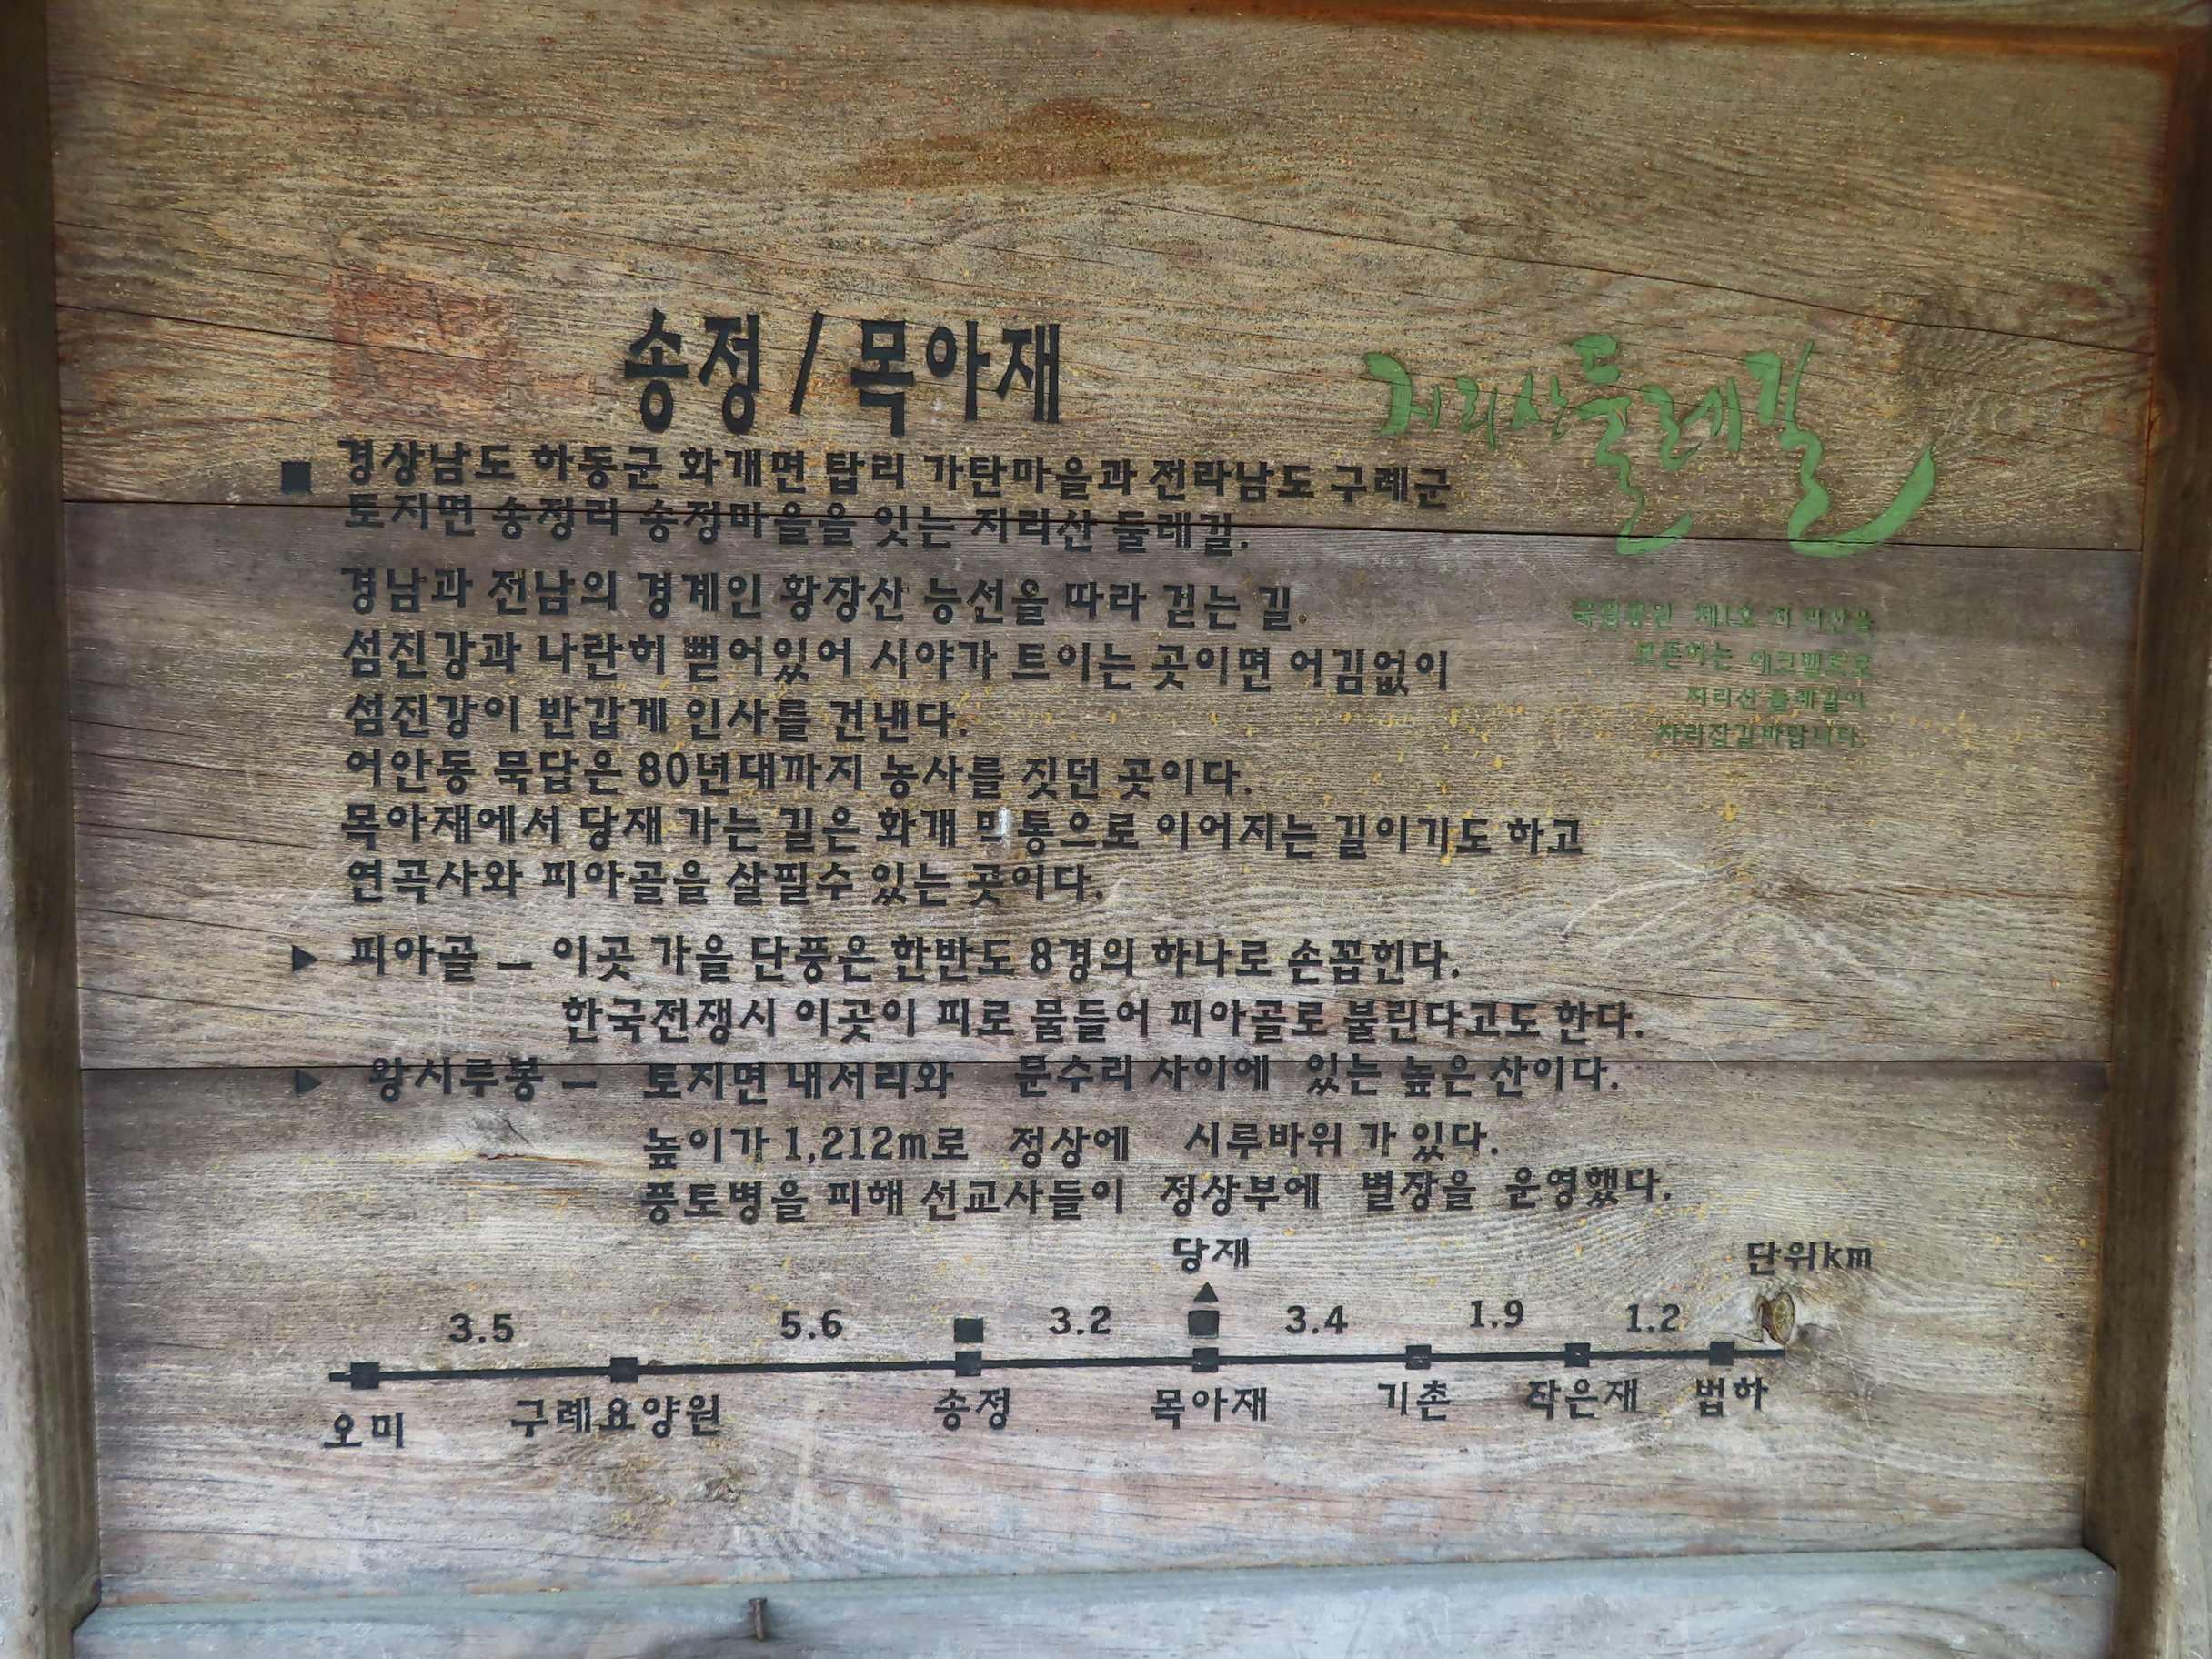 송정 / 목아재
지리산둘레길
■ 경상남도 하동군 화개면 탑리 가탄마을과 전라남도 구례군
토지면 송정리 송정마을을 잇는 지리산 둘레길.
경남과 전남의 경계인 황장산 능선을 따라 걷는 길.
섬진강과 나란히 뻗어있어 시야가 트이는 곳이면 어김없이
섬진강이 반갑게 인사를 건낸다.
어안동 묵답은 80년대까지 농사를 짓던 곳이다.
목아재에서 당재 가는 길은 화개 통으로 이어지는 길이기도 하고
연곡사와 피아골을 살필수 있는 곳이다.
국립공원 제1호 지리산을
보존하는 에코벨트로
지리산 둘레길이
자리잡길바랍니다.
▶ 피아골 – 이곳 가을 단풍은 한반도 8경의 하나로 손꼽힌다.
한국전쟁시 이곳이 피로 물들어 피아골로 불린다고도 한다.
▶ 왕시루봉 – 토지면 내서리와 문수리 사이에 있는 높은 산이다.
높이가 1,212m로 정상에 시루바위 가 있다.
풍토병을 피해 선교사들이 정상부에 별장을 운영했다.
당재
단위km
3.5 5.6 3.2 3.4 1.9 1.2
오미 구례요양원 송정 목아재 기촌 작은재 법하